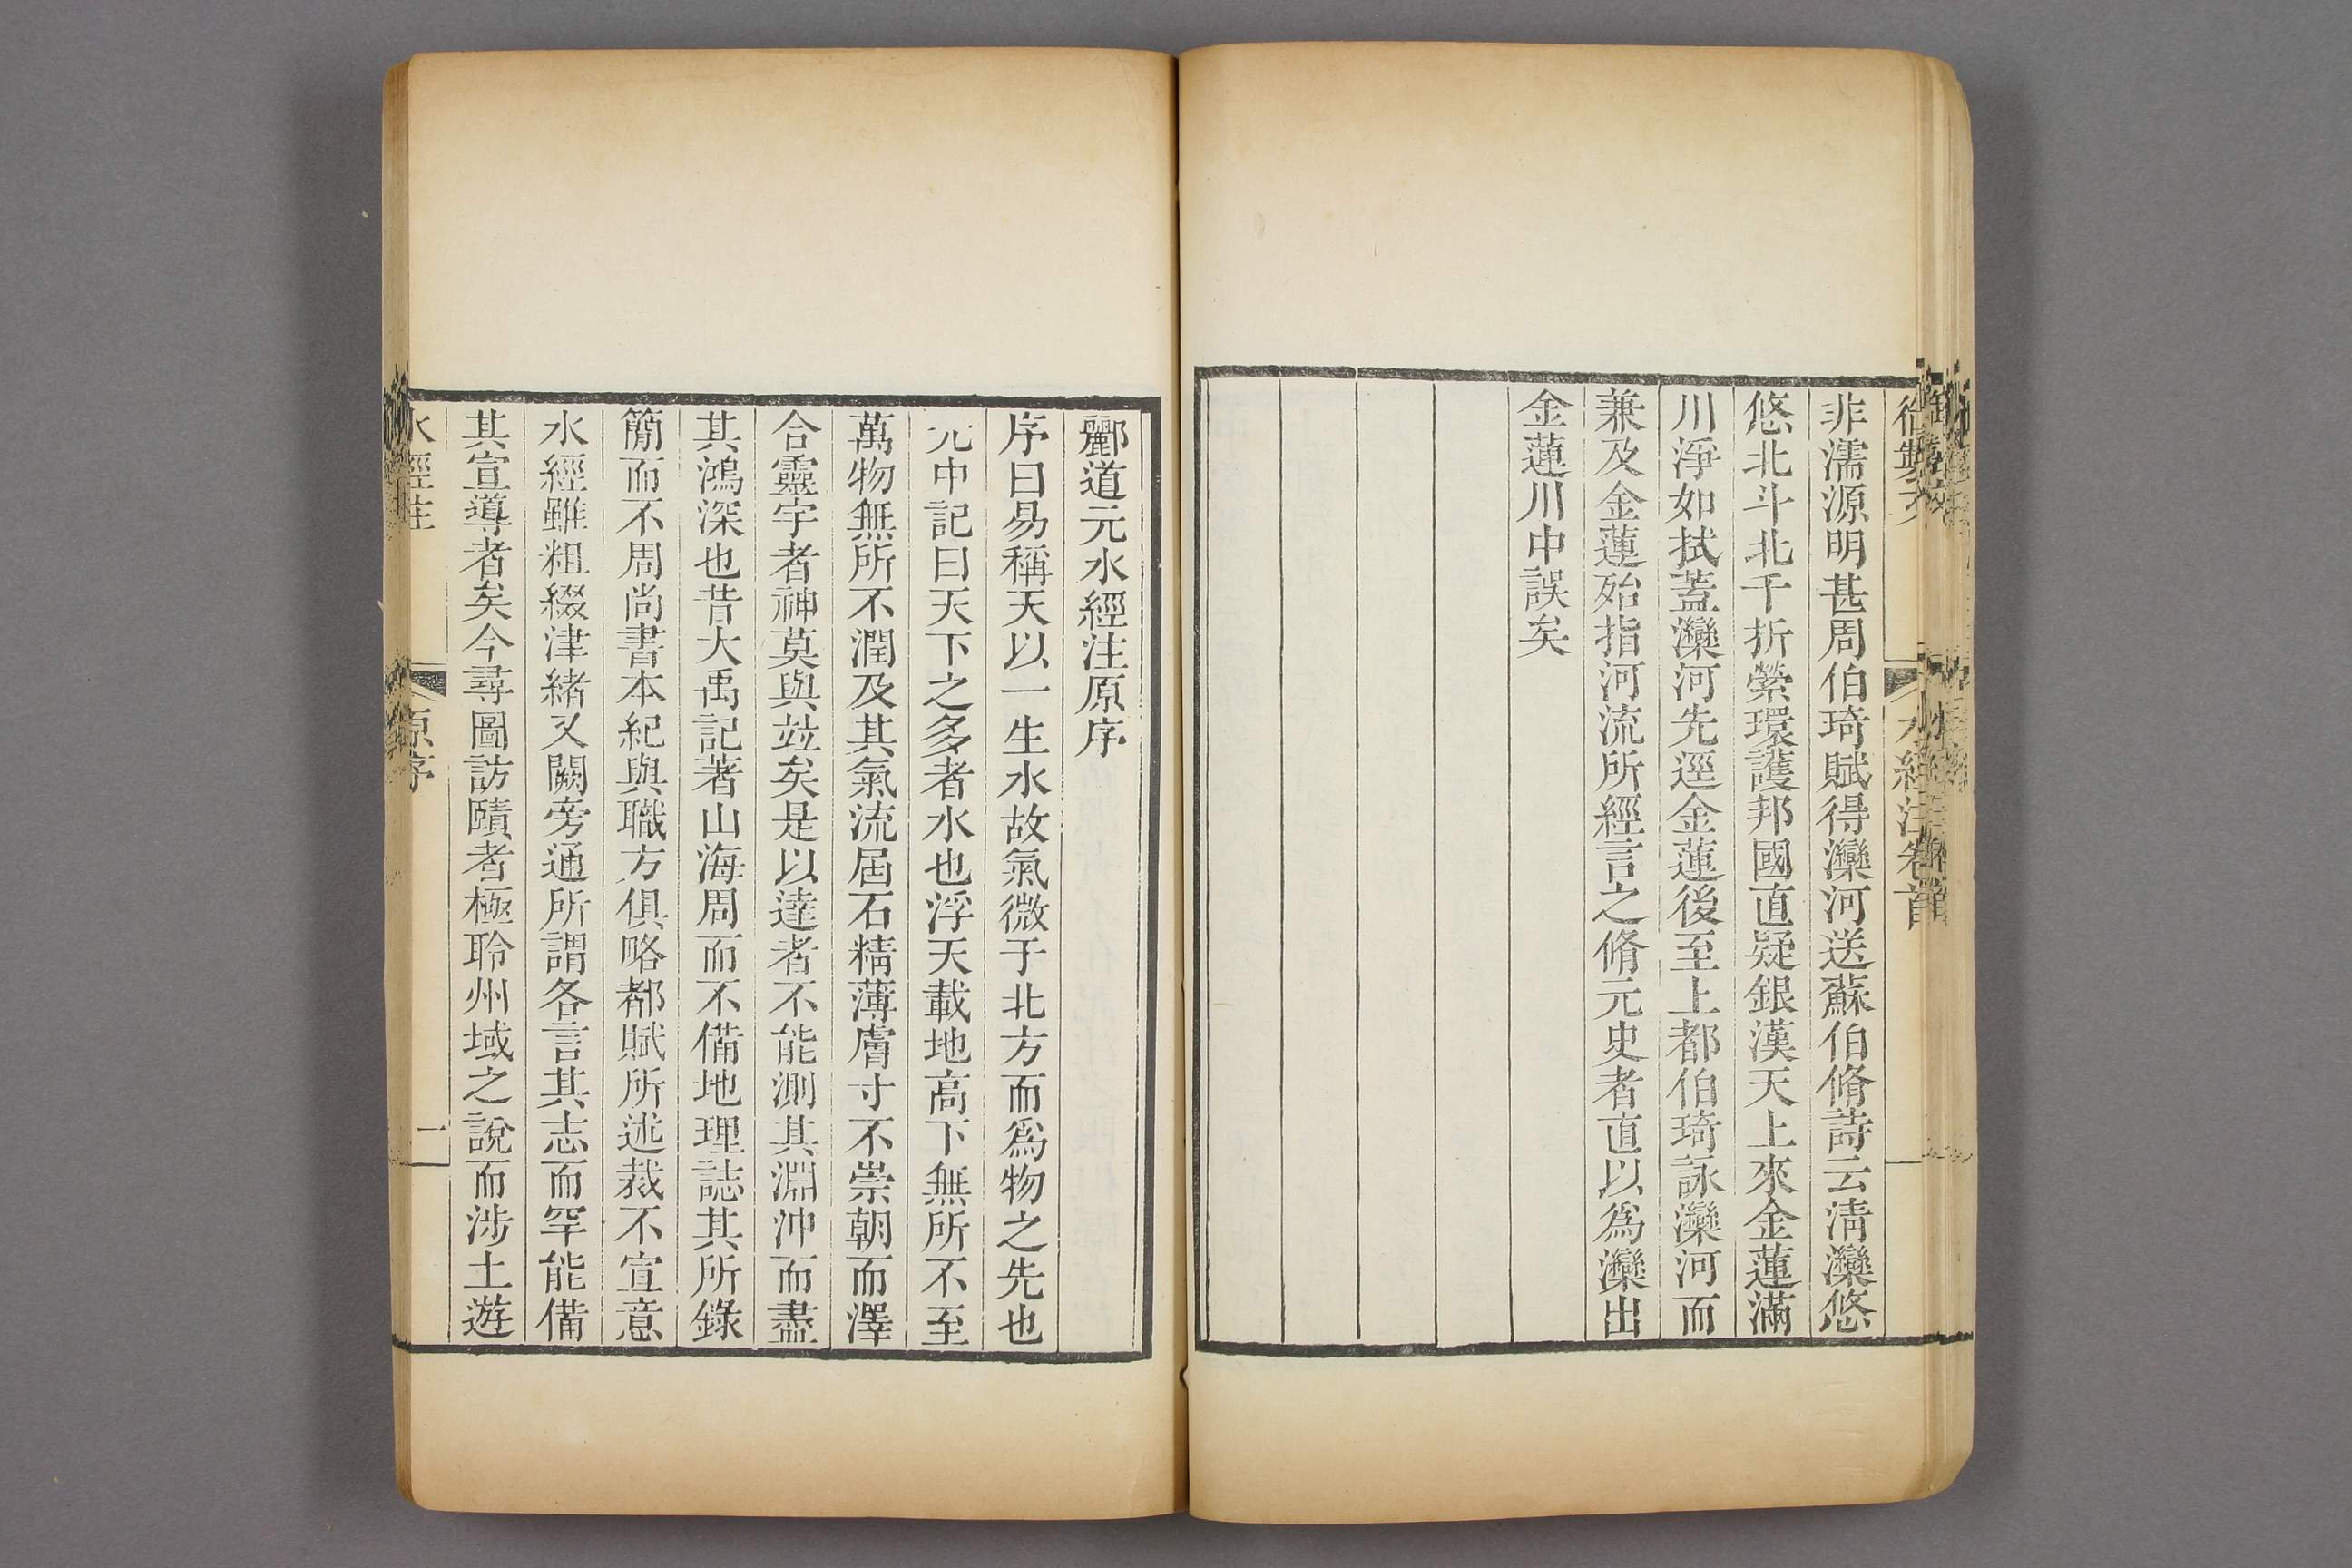 非濡源明甚周伯琦賦得灤河送蘇伯脩詩云清灤悠
悠北斗北千折縈環護邦國直疑銀漢天上來金蓮滿
川淨如拭蓋灤河先逕金蓮後至上都伯琦詠灤河而
兼及金蓮殆指河流所經言之脩元史者直以為灤出
金蓮川中誤矣
酈道元水經注原序
序曰易稱天以一生水故氣微于北方而為物之先也
元中記曰天下之多者水也浮天載地高下無所不至
萬物無所不潤及其氣流屆石精薄膚寸不崇朝而澤
合靈宇者神莫與竝矣是以達者不能測其淵沖而盡
其鴻深也昔大禹記著山海周而不備地理誌其所錄
簡而不周尚書本紀與職方俱略都賦所述裁不宣意
水經雖粗綴津緒又闕旁通所謂各言其志而罕能備
其宣導者矣今尋圖訪賾者極聆州域之說而涉土遊
水經注 原序 一